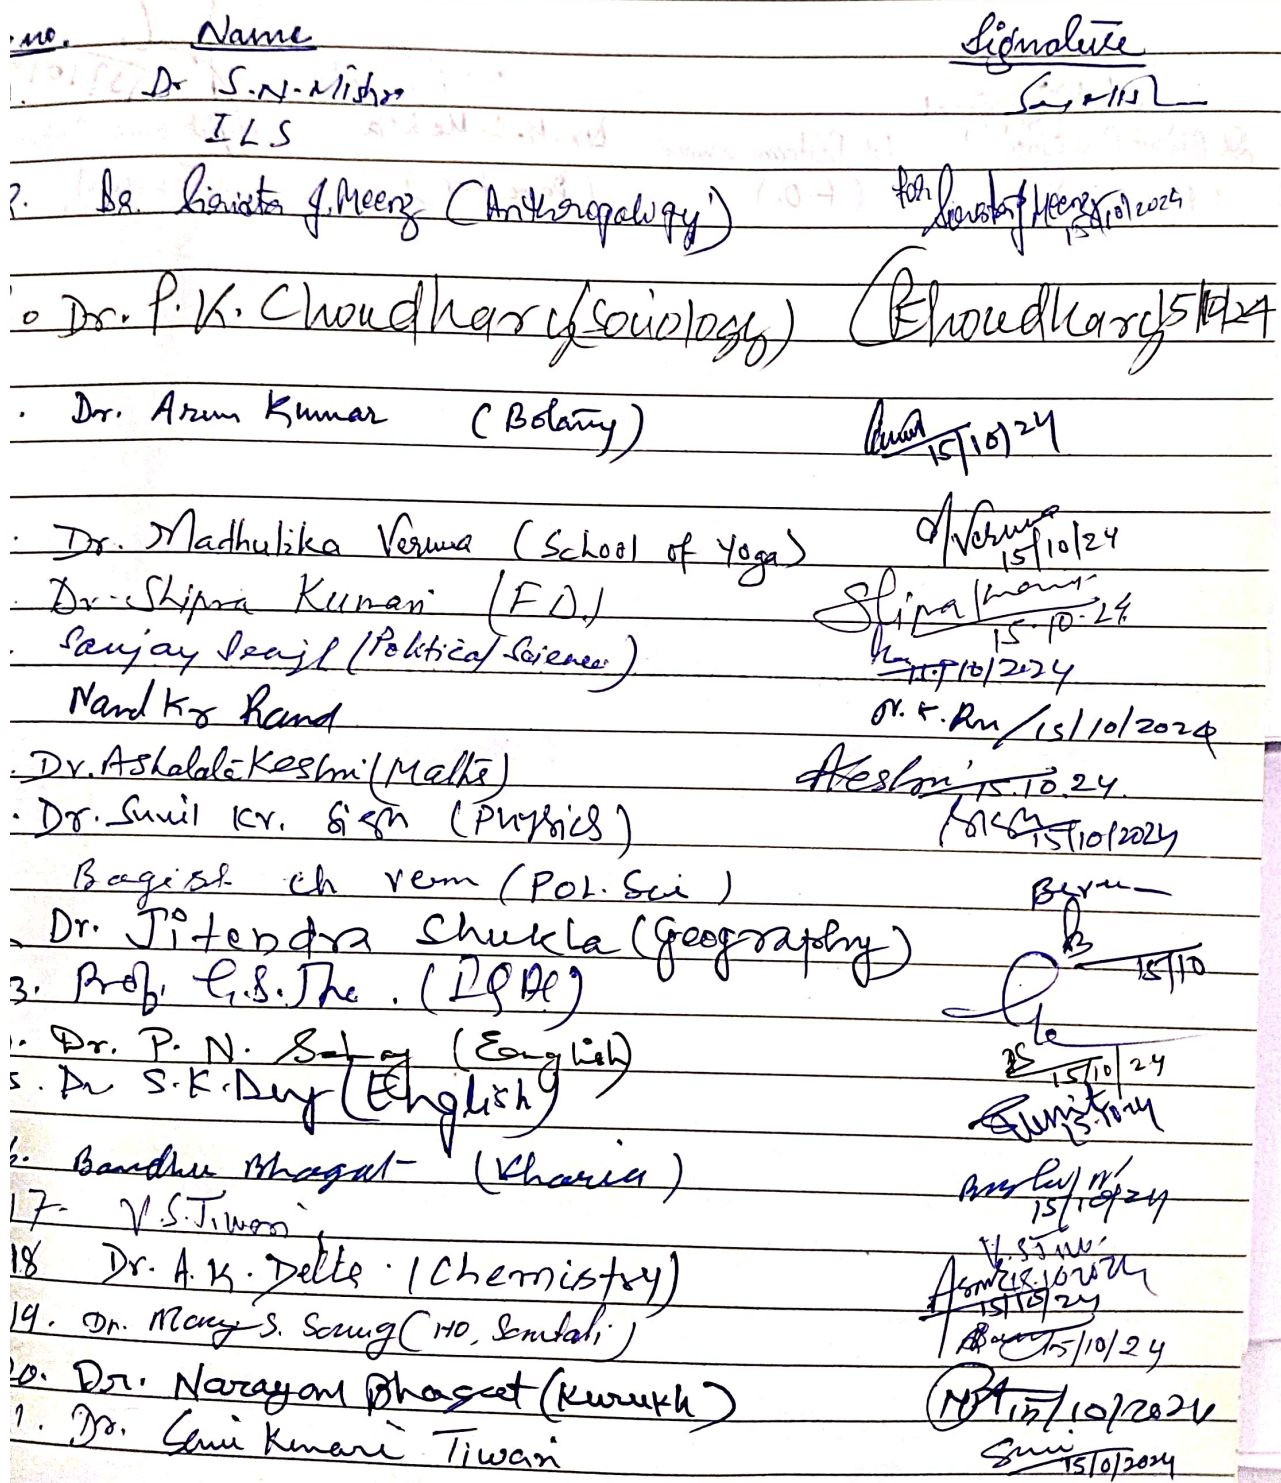 no. Name Signature
Dr S.N. Mishra
ILS
2. Dr. J. Meenz (Anthropology) for Meenz 15/10/2024
Dr. P. K. Choudhary (Sociology) Choudhary 15/10/24
Dr. Arun Kumar (Botany) 15/10/24
Dr. Madhulika Verma (School of Yoga) Verma 15/10/24
Dr. Shipra Kumari (F.D.) Shipra Kumari 15.10.24
Sanjay (Political Science) 10/2024
Nand Kr Rand N.K. 15/10/2024
Dr. Ashalata Keshri (Maths) AKeshri 15.10.24.
Dr. Sunil Kr. Singh (Physics) 15/10/2024
Bagish ch verm (POL. Sci)
Dr. Jitendra Shukla (Geography) 15/10
3. Prof. G.S. Jha.
Dr. P. N. Sahay (English) 15/10/24
5. Dr S.K. Dey (English) 15.10.24
Bandhu Bhagat (Kharia) 15/10/24
17- V.S. Tiwari V.S Tiwari
18 Dr. A. K. Delta (Chemistry) 15/10/24
19. Dr. Mary S. Soreng (HO, Santali) 15/10/24
20. Dr. Narayan Bhagat (Kurukh) 15/10/2024
1. Dr. Kumari Tiwari 15/10/2024